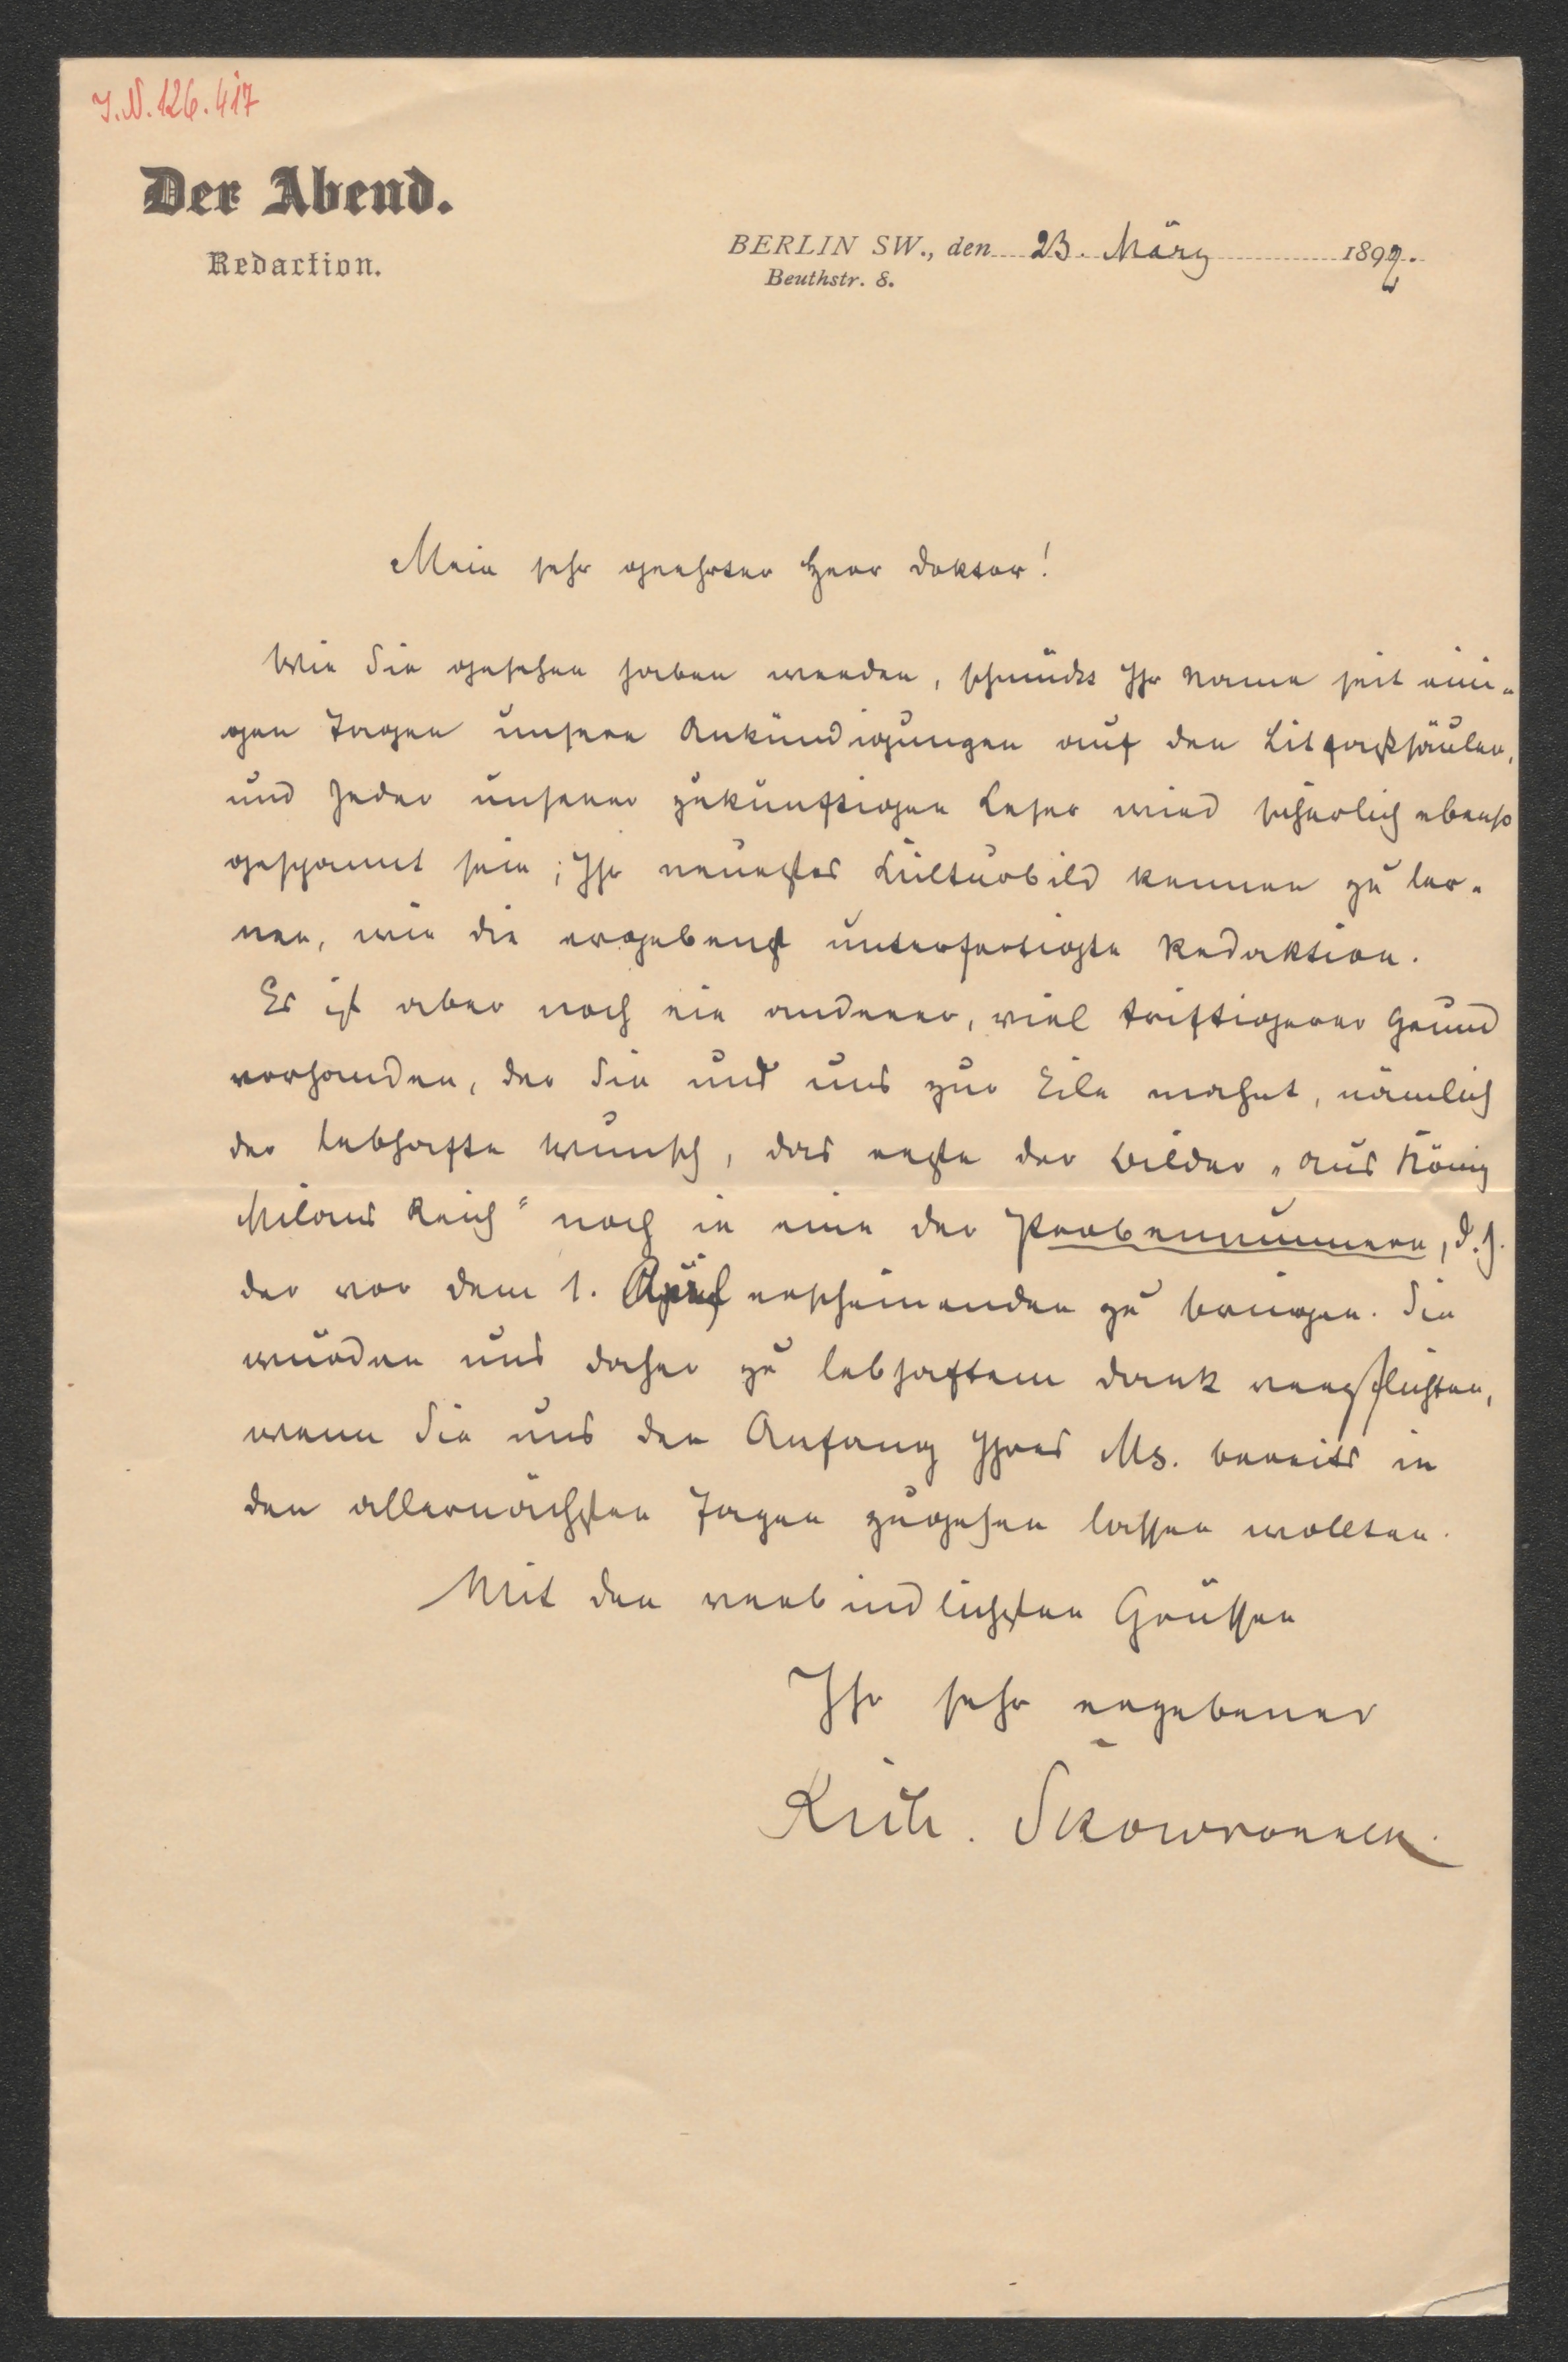 I.N. 126.417
Der Abend.
Redaction.
BERLIN SW., den 23. März 1892.
Beuthstr. 8.
Mein sehr geehrter Herr Doktor!
Wie Sie gesehen haben werden, schmückt Ihr Name seit eini-
gen Tagen unsere Ankündigungen auf den Litfaßsäulen,
und Jeder unserer zukünftigen Leser wird sicherlich ebenso
gespannt sein, Ihr neuestes Kulturbild kennen zu ler-
nen, wie die ergebenst unterfertigte Redaktion.
Es ist aber noch ein anderer, viel triftigerer Grund
vorhanden, der Sie und uns zur Eile mahnt, nämlich
der lebhafte Wunsch, das erste der Bilder „aus König
Milans Reich“ noch in eine der Probenummern, d. h.
der vor dem 1. April erscheinenden zu bringen. Sie
würden uns daher zu lebhaftem Dank verpflichten,
wenn Sie uns den Anfang Ihres Ms. bereits in
den allernächsten Tagen zugehen lassen wollten.
Mit den verbindlichsten Grüssen
Ihr sehr ergebener
Rich. Skowronnek.